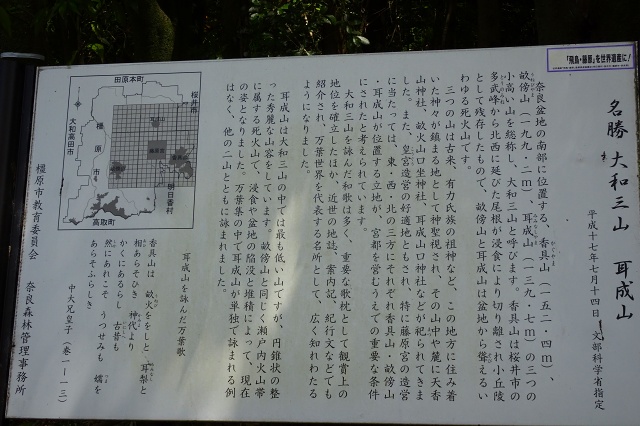 「飛鳥・藤原」を世界遺産に!
名勝 大和三山 耳成山
平成十七年七月十四日 文部科学省指定
奈良盆地の南部に位置する、香具山(一五二・四m)、
畝傍山(一九九・二m)、耳成山(一三九・七m)の三つの
小高い山を総称し、大和三山と呼びます。香具山は桜井市の
多武峰から北西に延びた尾根が浸食により切り離され小丘陵
として残存したもので、畝傍山と耳成山は盆地から聳えるい
わゆる死火山です。
三つの山は古来、有力氏族の祖神など、この地方に住み着
いた神々が鎮まる地として神聖視され、その山中や麓に天香
山神社、畝火山口坐神社、耳成山口神社などが祀られてきま
した。また、皇宮造営の好適地ともされ、特に藤原宮の造営
に当たっては、東・西・北の三方にそれぞれ香具山・畝傍山
・耳成山が位置する立地が、宮都を営むうえでの重要な条件
にされたと考えられています。
大和三山を詠んだ和歌は多く、重要な歌枕として観賞上の
地位を確立したほか、近世の地誌、案内記、紀行文などでも
紹介され、万葉世界を代表する名所として、広く知れわたる
ようになりました。
耳成山は大和三山の中では最も低い山ですが、円錐状の整
った秀麗な山容をしています。畝傍山と同じく瀬戸内火山帯
に属する死火山で、浸食や盆地の陥没と堆積によって、現在
の姿となりました。万葉集の中で耳成山が単独で詠まれる例
はなく、他の二山とともに詠まれました。
耳成山を詠んだ万葉歌
香具山は 畝火ををしと 耳梨と
相あらそひき 神代より
かくにあるらし 古昔も
然にあれこそ うつせみも 嬬を
あらそふらしき
中大兄皇子(巻一-一三)
橿原市教育委員会 奈良森林管理事務所
田原本町
桜井市
橿原市
大和高田市
明日香村
高取町